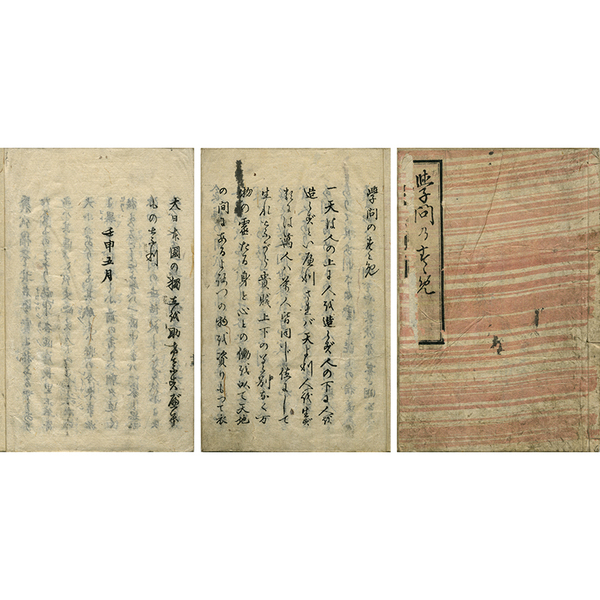 學問乃すゝめ
学問のすゝめ
一天は人の上に人を造らず人の下に人を
造らずといへりされバ天より人を生ず
るには萬人ハ萬人皆同じ位にして
生れながら貴賤上下の差別なく万
物の霊たる身と心との働を以て天地
の間にあるよろづの物を資りもつて衣
大日本國の獨立を助
壬申五月